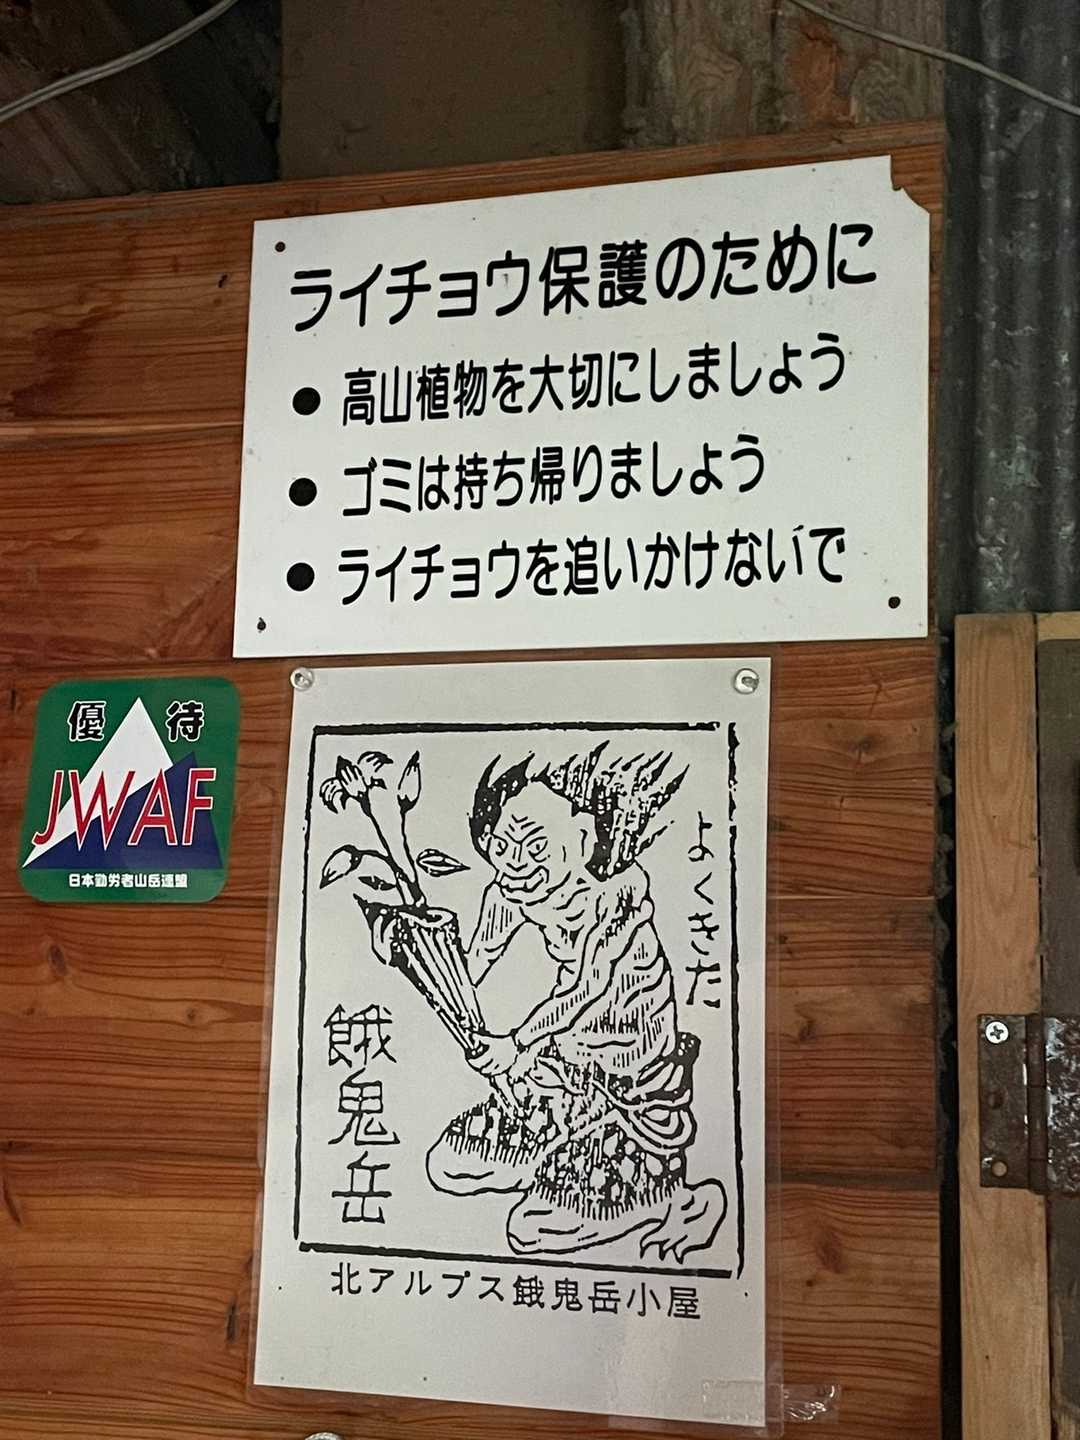 ライチョウ保護のために
● 高山植物を大切にしましょう
● ゴミは持ち帰りましょう
● ライチョウを追いかけないで
優 待
JWAF
日本勤労者山岳連盟
よくきた
餓鬼岳
北アルプス餓鬼岳小屋